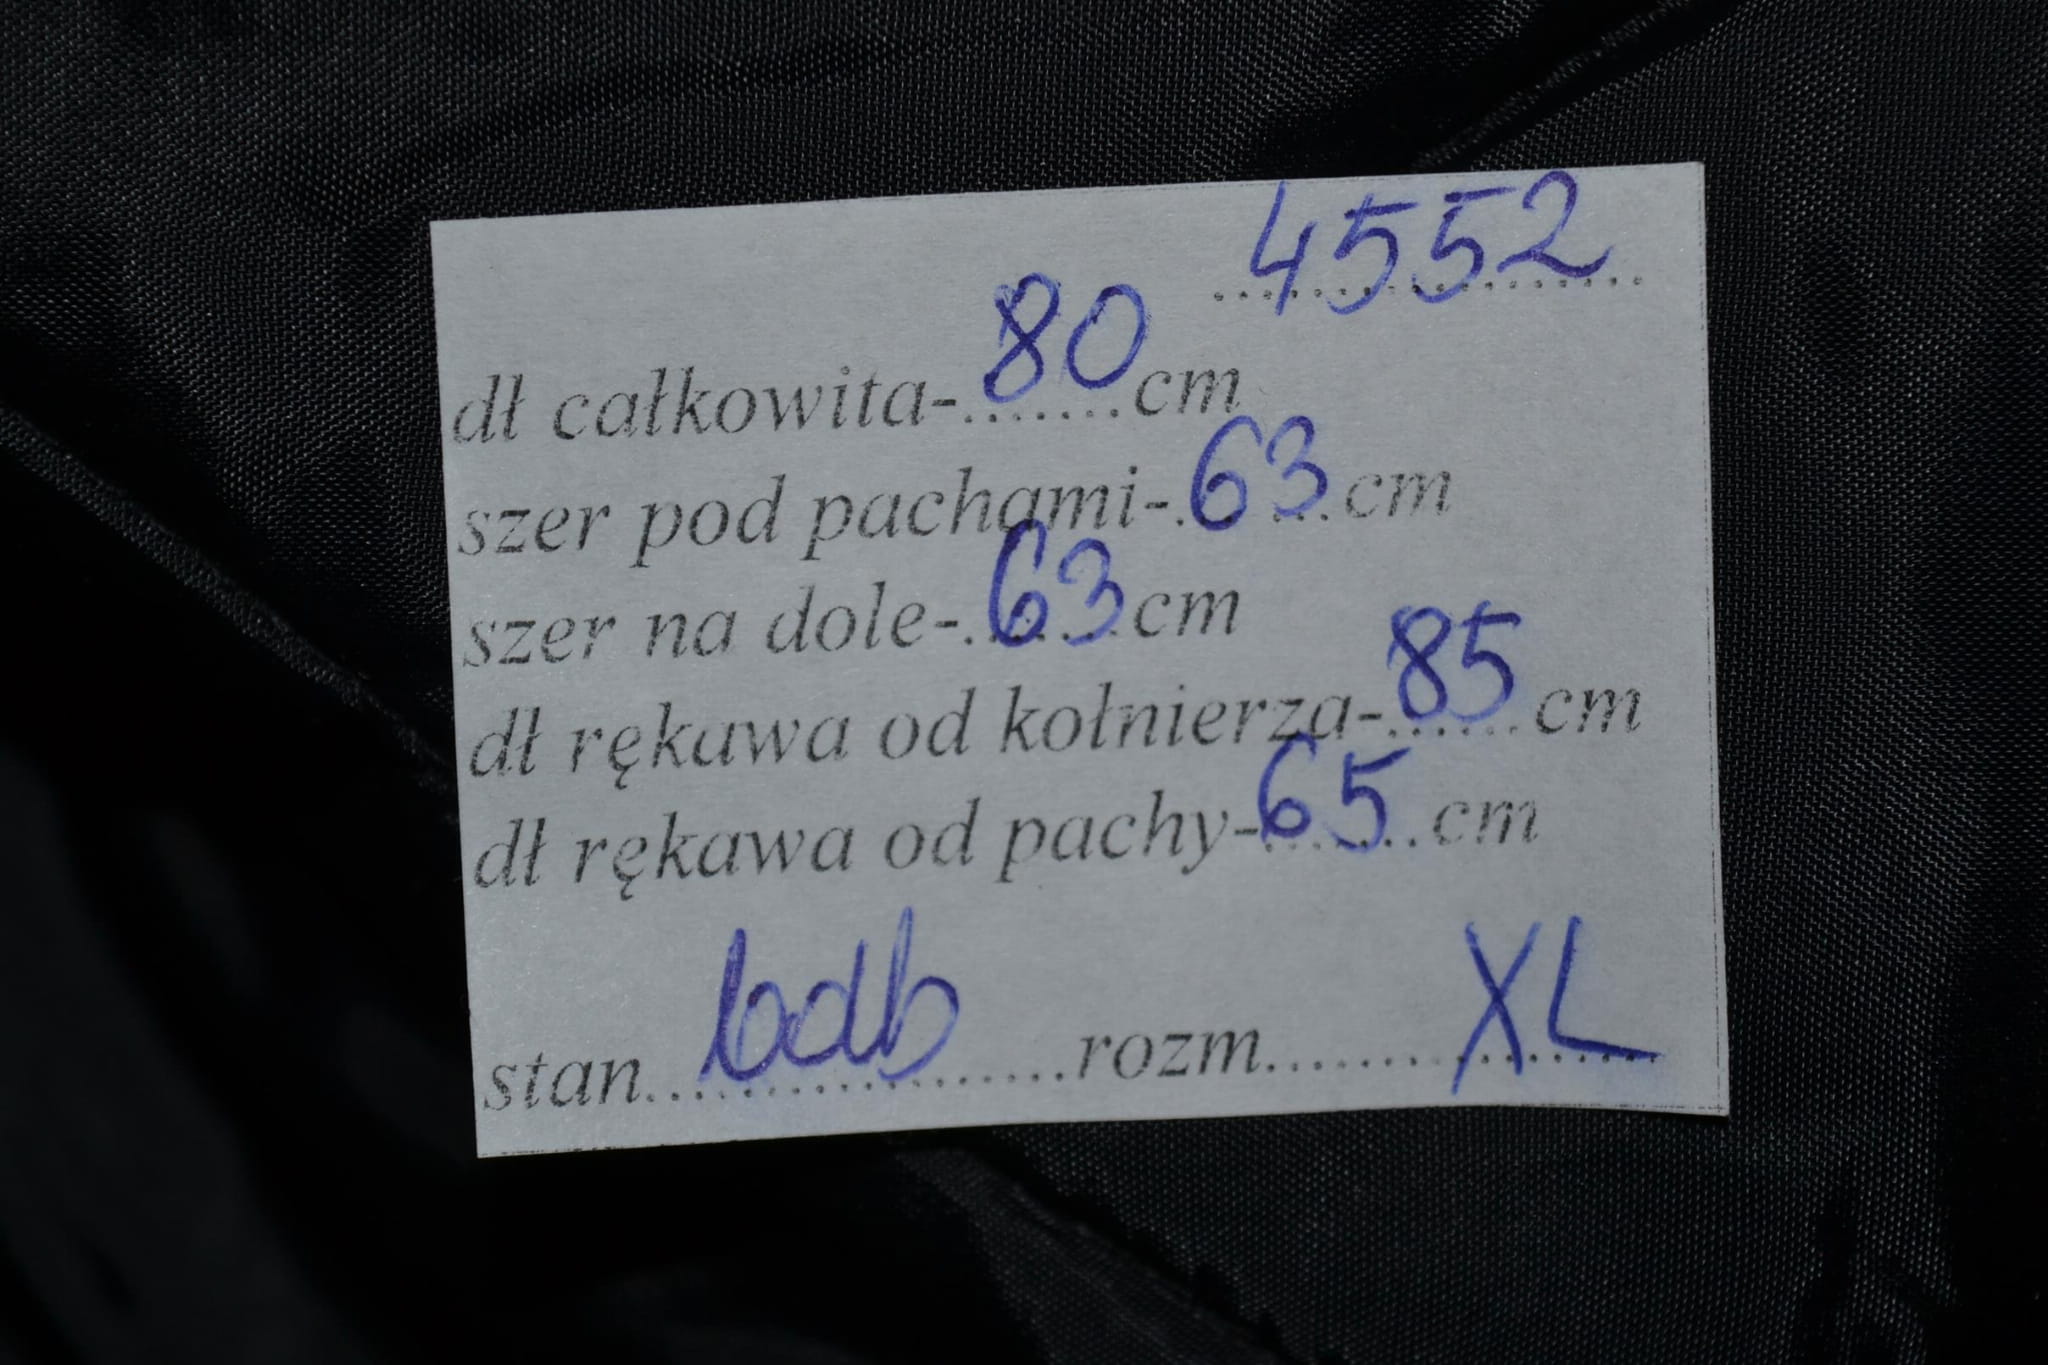 4552
dł całkowita-80cm
szer pod pachami-63cm
szer na dole-63cm
dł rękawa od kołnierza-85cm
dł rękawa od pachy-65cm
stan bdb rozm XL